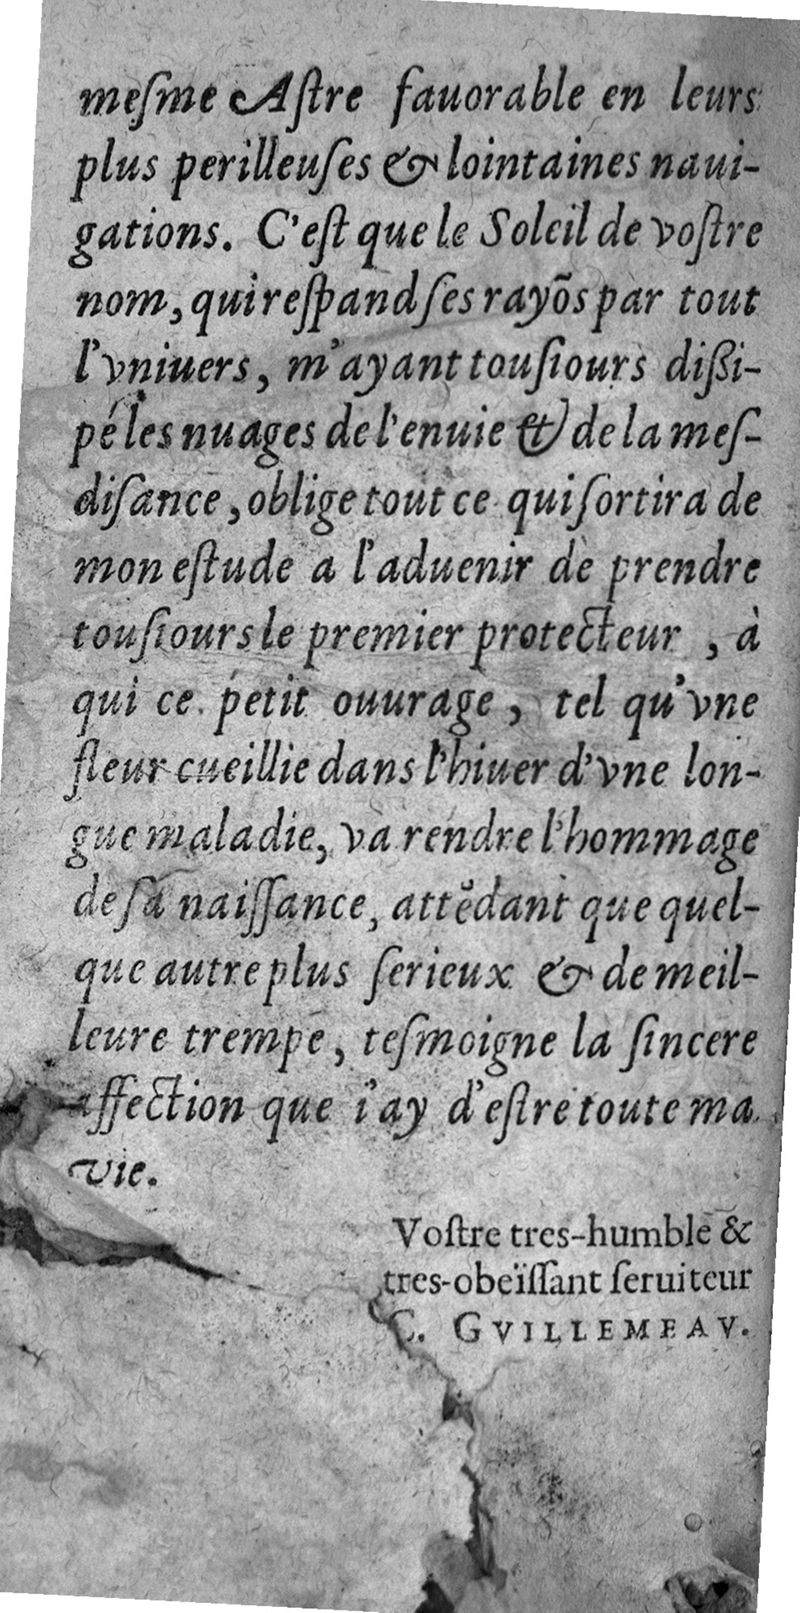 meſme Aſtre fauorable en leurs
plus perilleuſes & lointaines naui-
gations. C'eſt que le Soleil de voſtre
nom, qui reſpand ſes rayõs par tout
l'vniuers, m'ayant touſiours diſſi-
pé les nuages de l'enuie & de la meſ-
diſance, oblige tout ce qui ſortira de
mon eſtude a l'aduenir de prendre
touſiours le premier protecteur, à
qui ce petit ouurage, tel qu'vne
fleur cueillie dans l'hiuer d'vne lon-
gue maladie, va rendre l'hommage
de ſa naiſſance, attẽdant que quel-
que autre plus ſerieux & de meil-
leure trempe, teſmoigne la ſincere
affection que i'ay d'eſtre toute ma
vie.
Voſtre tres-humble &
tres-obeïſſant ſeruiteur
C. GVILLEMEAV.